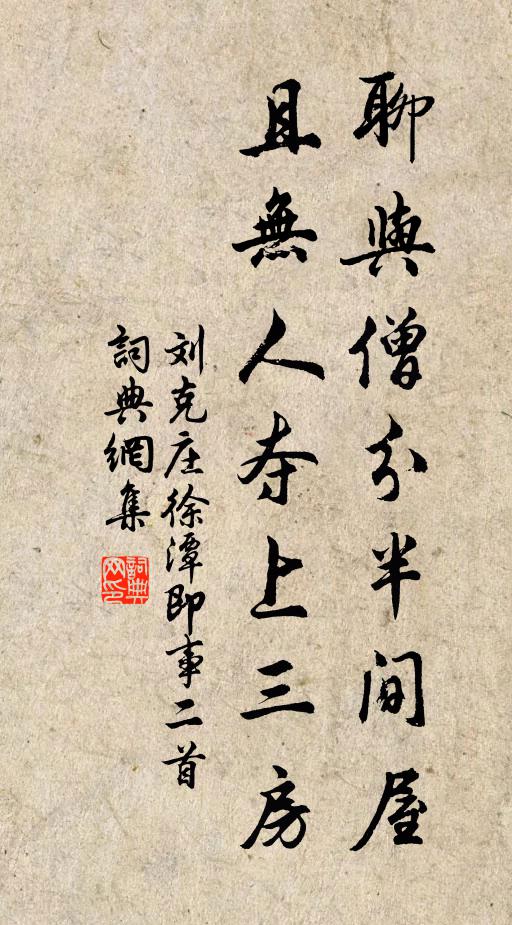 聊與僧分半间屋
且無人夺上三房
刘克庄徐潭即事二首
詞典網集
詞典网印